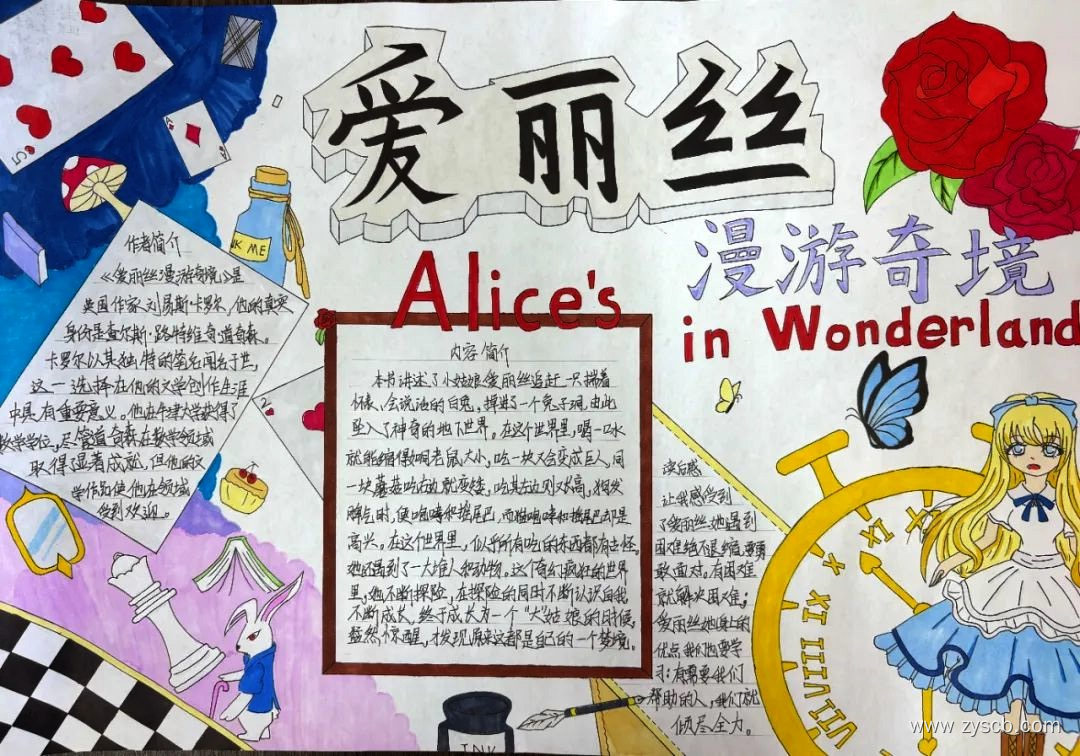 爱丽丝
漫游奇境
Alice's
in Wonderland
5
A
K ME
作者简介
《爱丽丝漫游奇境》是
英国作家刘易斯·卡罗尔,他的真实
身份是查尔斯·路特维奇道奇森。
卡罗尔以其独特的笔名闻名于世,
这一选择在他的文学创作生涯
中具有重要意义。他在牛津大学获得了
数学学位,尽管道奇森在数学领域
取得显著成就,但他的文
学作品使他在领域
受到欢迎。
2
内容简介
本书讲述了小姑娘爱丽丝追赶一只揣着
怀表、会说话的白兔,掉进了一个兔子洞,由此
坠入了神奇的地下世界。在这个世界里,喝一口水
就能缩得如同老鼠大小,吃一块又会变成巨人,同
一块蘑菇吃右边就变矮,吃其左边则又长高,狗发
脾气时,便咆哮和摇尾巴,而猫咆哮和摇尾巴却是
高兴。在这个世界里,似乎所有吃的东西都有古怪。
她还遇到了一大堆人和动物。这个奇幻疯狂的世界
里,她不断探险,在探险的同时不断认识自我
不断成长,终于成长为一个"大"姑娘的时候,
猛然惊醒,才发现原来这都是自己的一个梦境。
让我感受到
了爱丽丝她遇到
困难绝不退缩,要勇
敢面对,有困难
就解决困难;
爱丽丝她身上的
优点我们也要学
习:有需要我们
帮助的人,我们就
倾尽全力。
XI
X
IX
VIII
VII
INK
www.zyscb.com